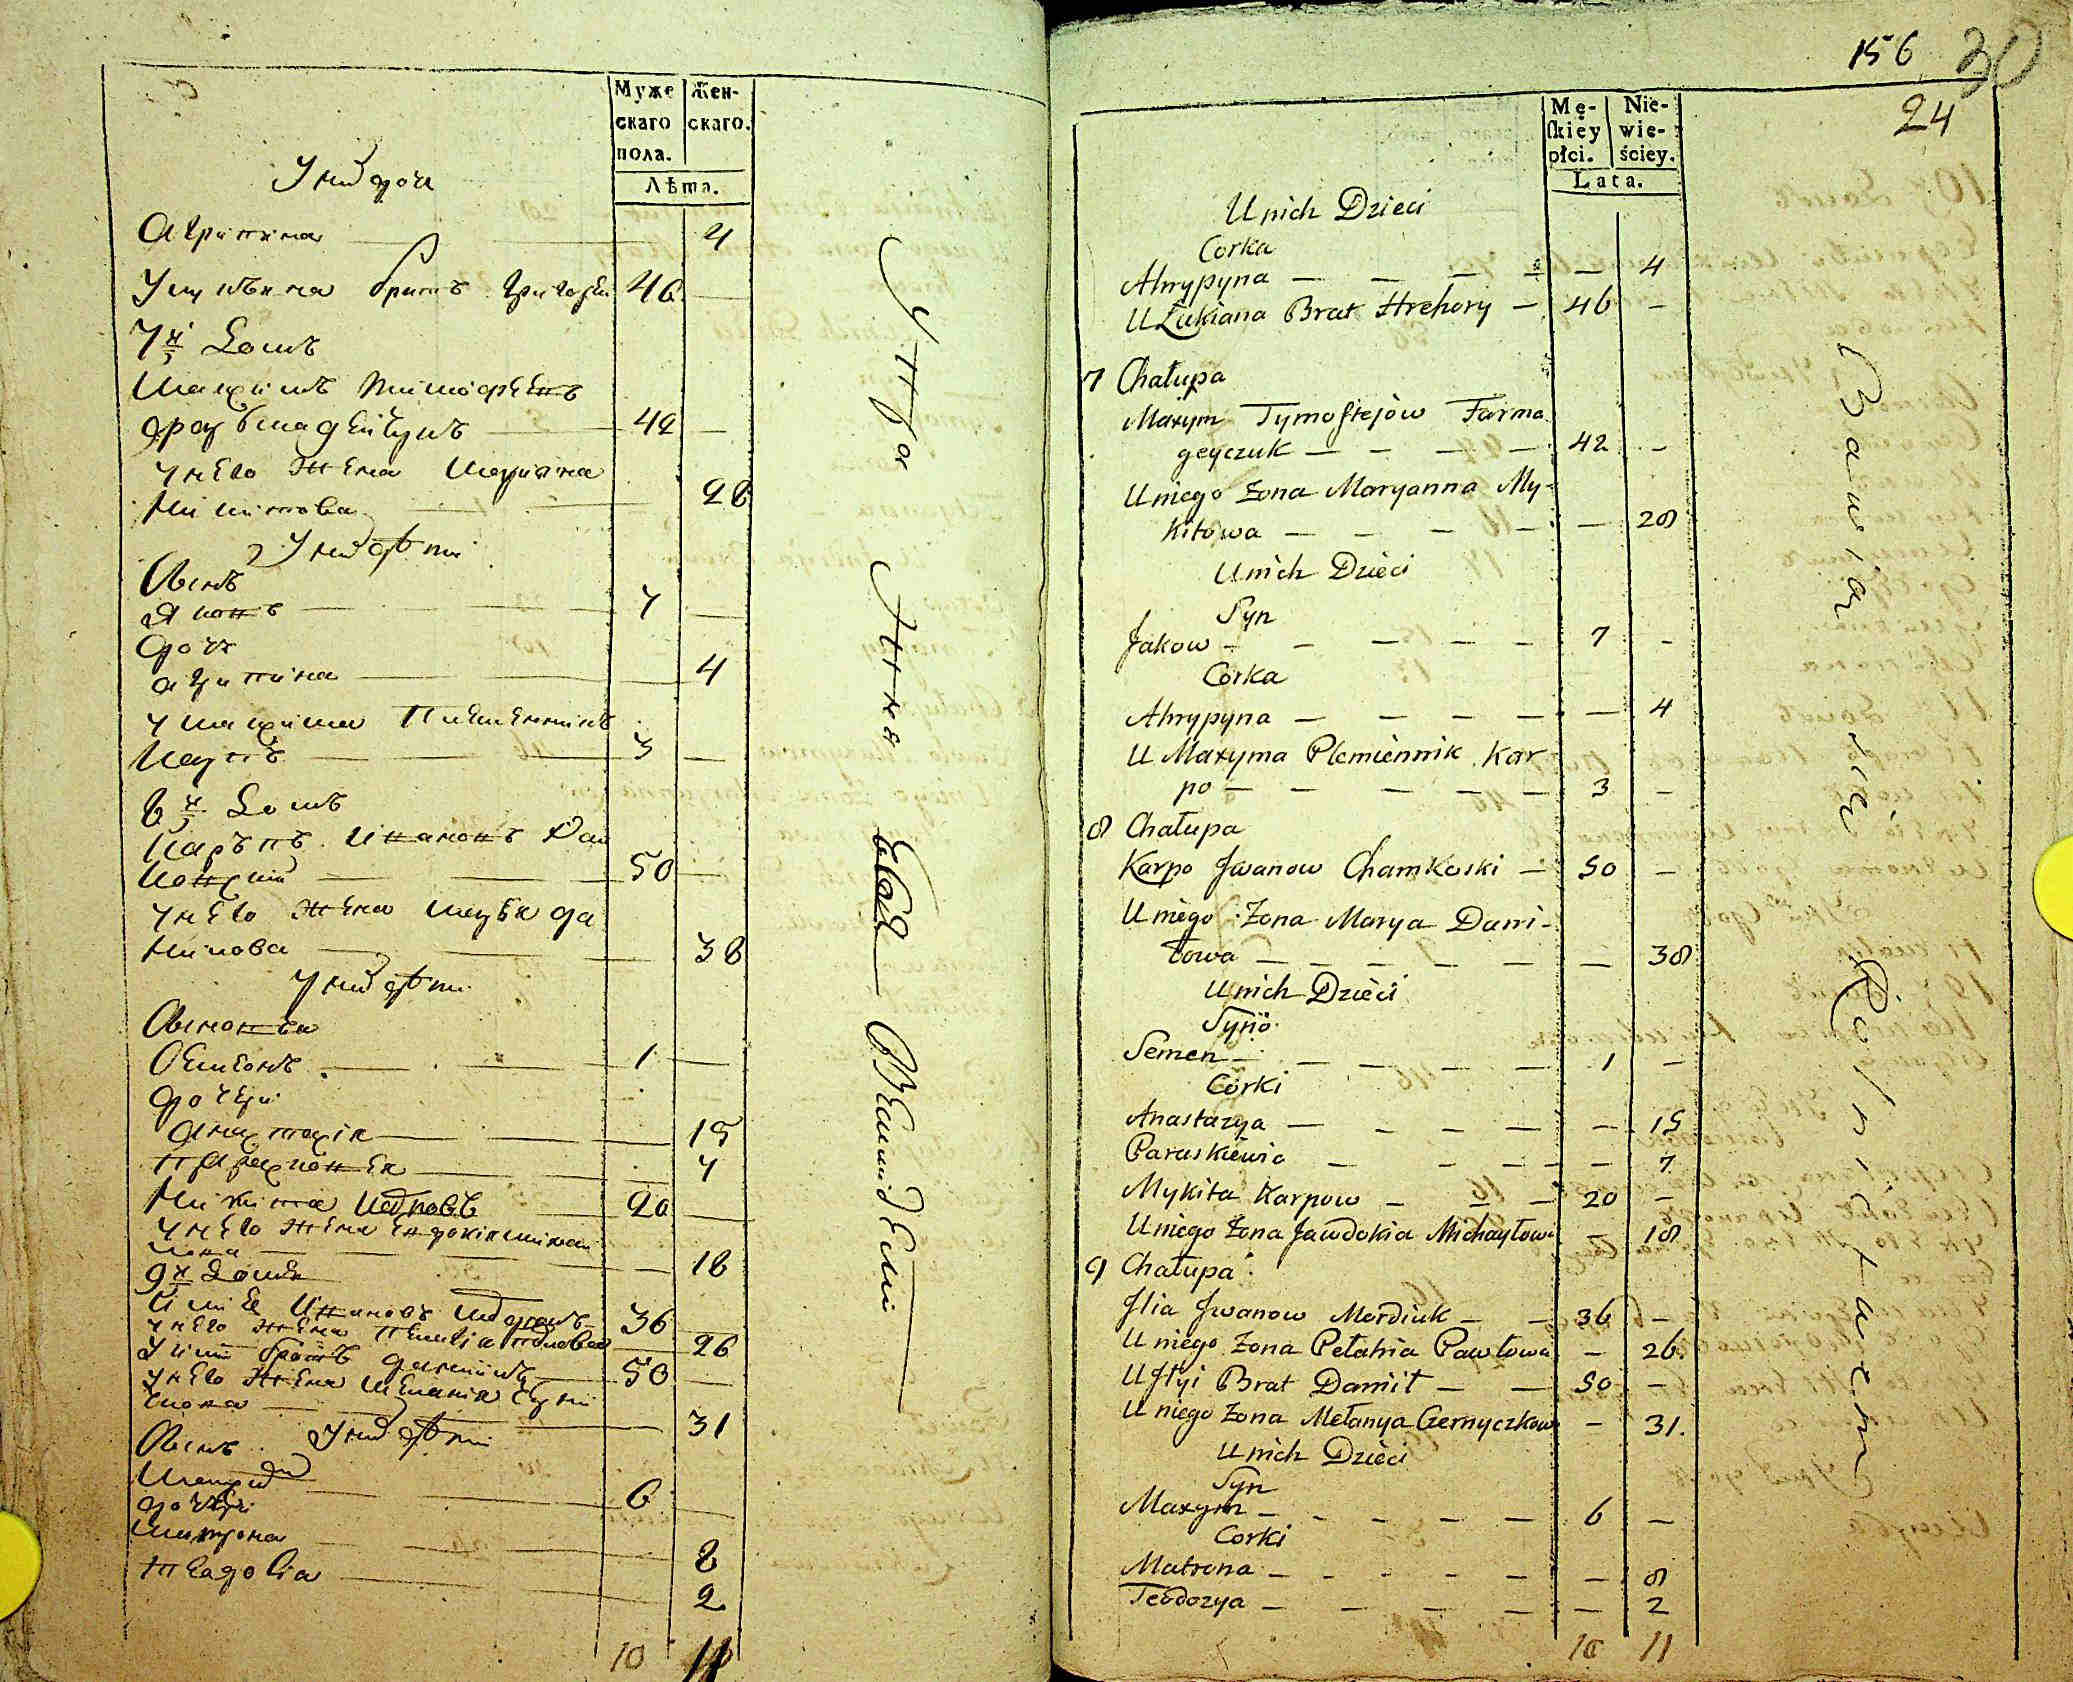 Муже
скаго
пола.
Жен-
скаго.
Лѣта.
У нихъ дочь
Агрипина — 4
брать Григорей 46 —
7й Домъ
Максимъ Тимофеевъ
42 —
у него жена Марiяна
Никитова — 28
У нихъ дѣти
Сынъ
Яковъ — 7 —
дочь
агрипина — 4
у максима племенникъ
Карпъ — 3 —
8й Домъ
Карпъ Ивановъ Хам
ковски — 50 —
у него жена марья да
нилова — 38
у нихъ дѣти
Сыновья
Семенъ — 1 —
дочери
анастасiя — 15
парасковья — 7
Никита Карповъ 20 —
у него жена евдокiя михаи
лова — 18
9й Домъ
Илiя Ивановъ 36 —
у него жена пелагiя павлова — 26
У илiи братъ данило 50 —
у него жена меланiя
— 31
Сынъ У нихъ дѣти
Максимъ — 6 —
дочери
матрона — 8
теодосiя — 2
10 11
156 30
24
Mę-
ſkiey
płci.
Nie-
wie-
ściey.
Lata.
U nich Dzieci
Corka
Ahrypyna — — — — — 4
U Łukiana Brat Hrehory — 46 —
7 Chałupa
Maxym Tymofiejów Farma
geyczuk — — — — 42 —
U niego Zona Maryanna My-
kitowa — — — — — 28
U nich Dzieci
Syn
Jakow — — — — — 7 —
Corka
Ahrypyna — — — — — 4
U Maxyma Plemiennik Kar
po — — — — — 3 —
8 Chałupa
Karpo Jwanow Chamkoski — 50 —
U niego Zona Marya Dani-
łowa — — — — — — 38
U nich Dzieci
Syno
Semen — — — — — 1 —
Corki
Anastazya — — — — — — 15
Paraskiewia — — — — — 7
Mykita Karpow — — — 20 —
U niego Zona Jawdokia Michayłowa — 18
9 Chałupa
Jlia Jwanow Mordiuk — — 36 —
U niego Zona Pełahia Pawłowa — 26.
U Jlyi Brat Daniił — — 50 —
U niego Zona Mełanya Czernyczkowa — 31.
U nich Dzieci
Syn
Maxym — — — — — 6 —
Corki
Matrona — — — — — — 8
Teodozya — — — — — — 2
10 11